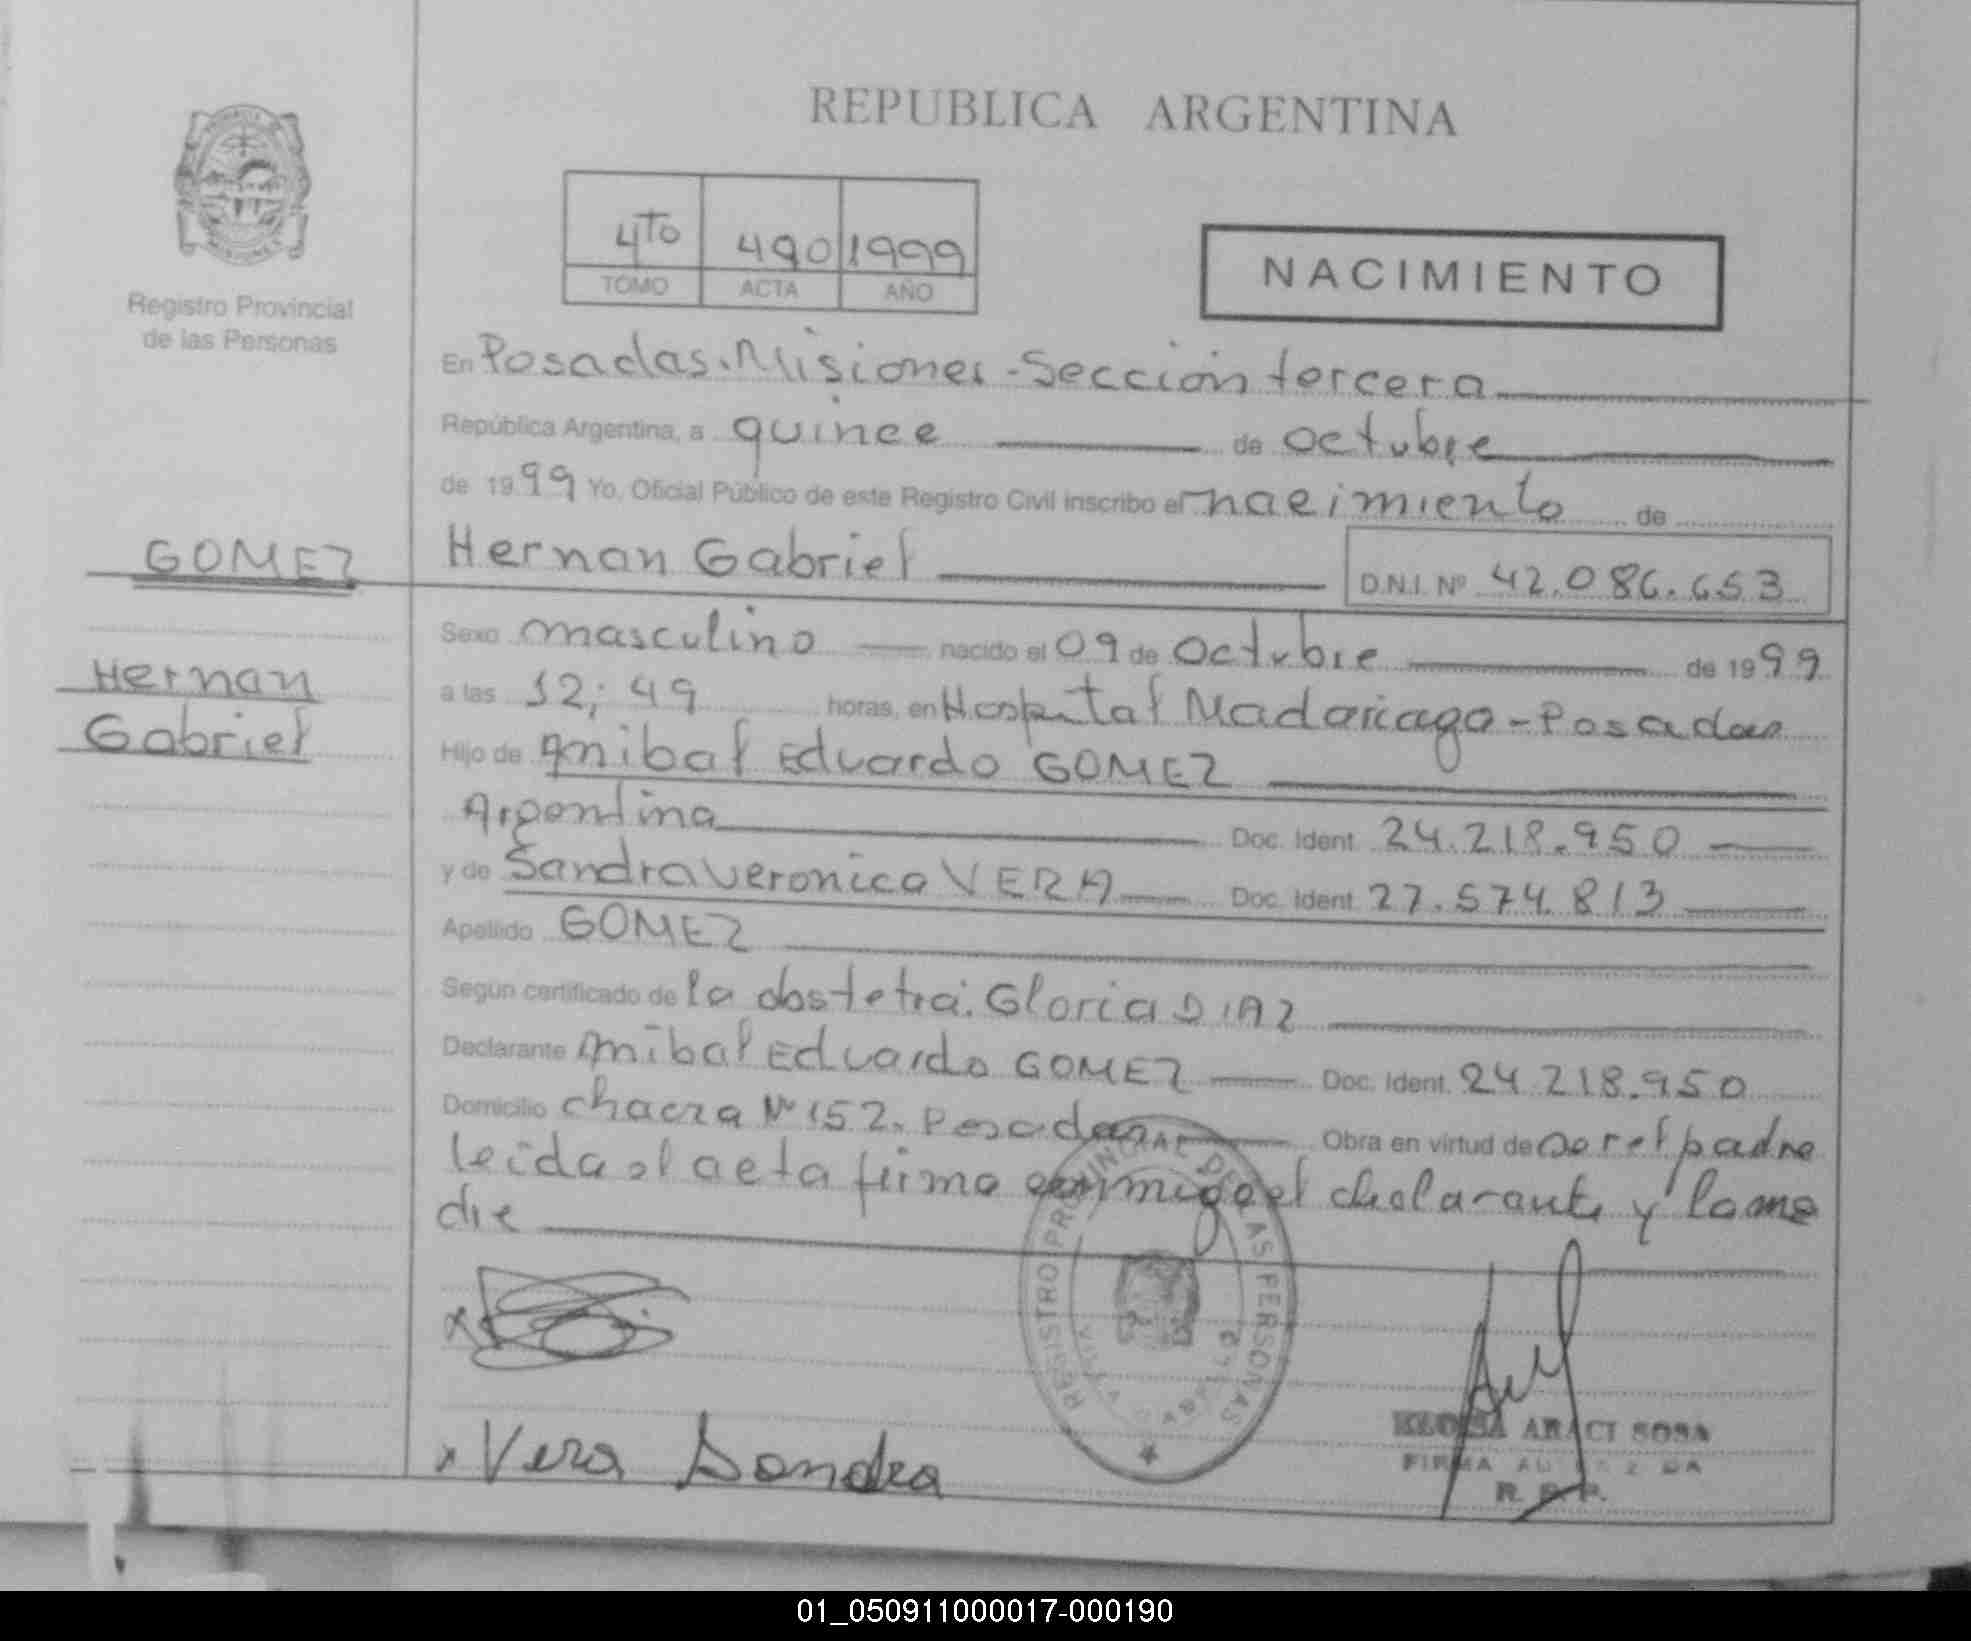 REPUBLICA ARGENTINA
4to 490 1999
TOMO ACTA AÑO
NACIMIENTO
Registro Provincial
de las Personas
En Posadas. Misiones - Sección tercera
República Argentina, a quince de octubre
de 1999 Yo, Oficial Público de este Registro Civil inscribo el nacimiento de
GOMEZ
Hernan Gabriel
D.N.I. Nº 42.086.653
Sexo masculino nacido el 09 de octubre de 1999
Hernan
Gabriel
a las 12; 49 horas, en Hospital Madariaga - Posadas
Hijo de Anibal Eduardo GOMEZ
Argentina Doc. Ident. 24.218.950
y de Sandra Veronica VERA Doc. Ident. 27.574.813
Apellido GOMEZ
Según certificado de la obstetra: Gloria DIAZ
Declarante Anibal Eduardo GOMEZ Doc. Ident. 24.218.950
Domicilio chacra Nº 152. Posadas Obra en virtud de ser el padre
leida el acta firma conmigo el declarante y la ma
dre
REGISTRO PROVINCIAL DE LAS PERSONAS
VILLA CABELLO
x Vera Sandra
ARACI SOSA
FIRMA AUTORIZADA
R. P. P.
01_050911000017-000190